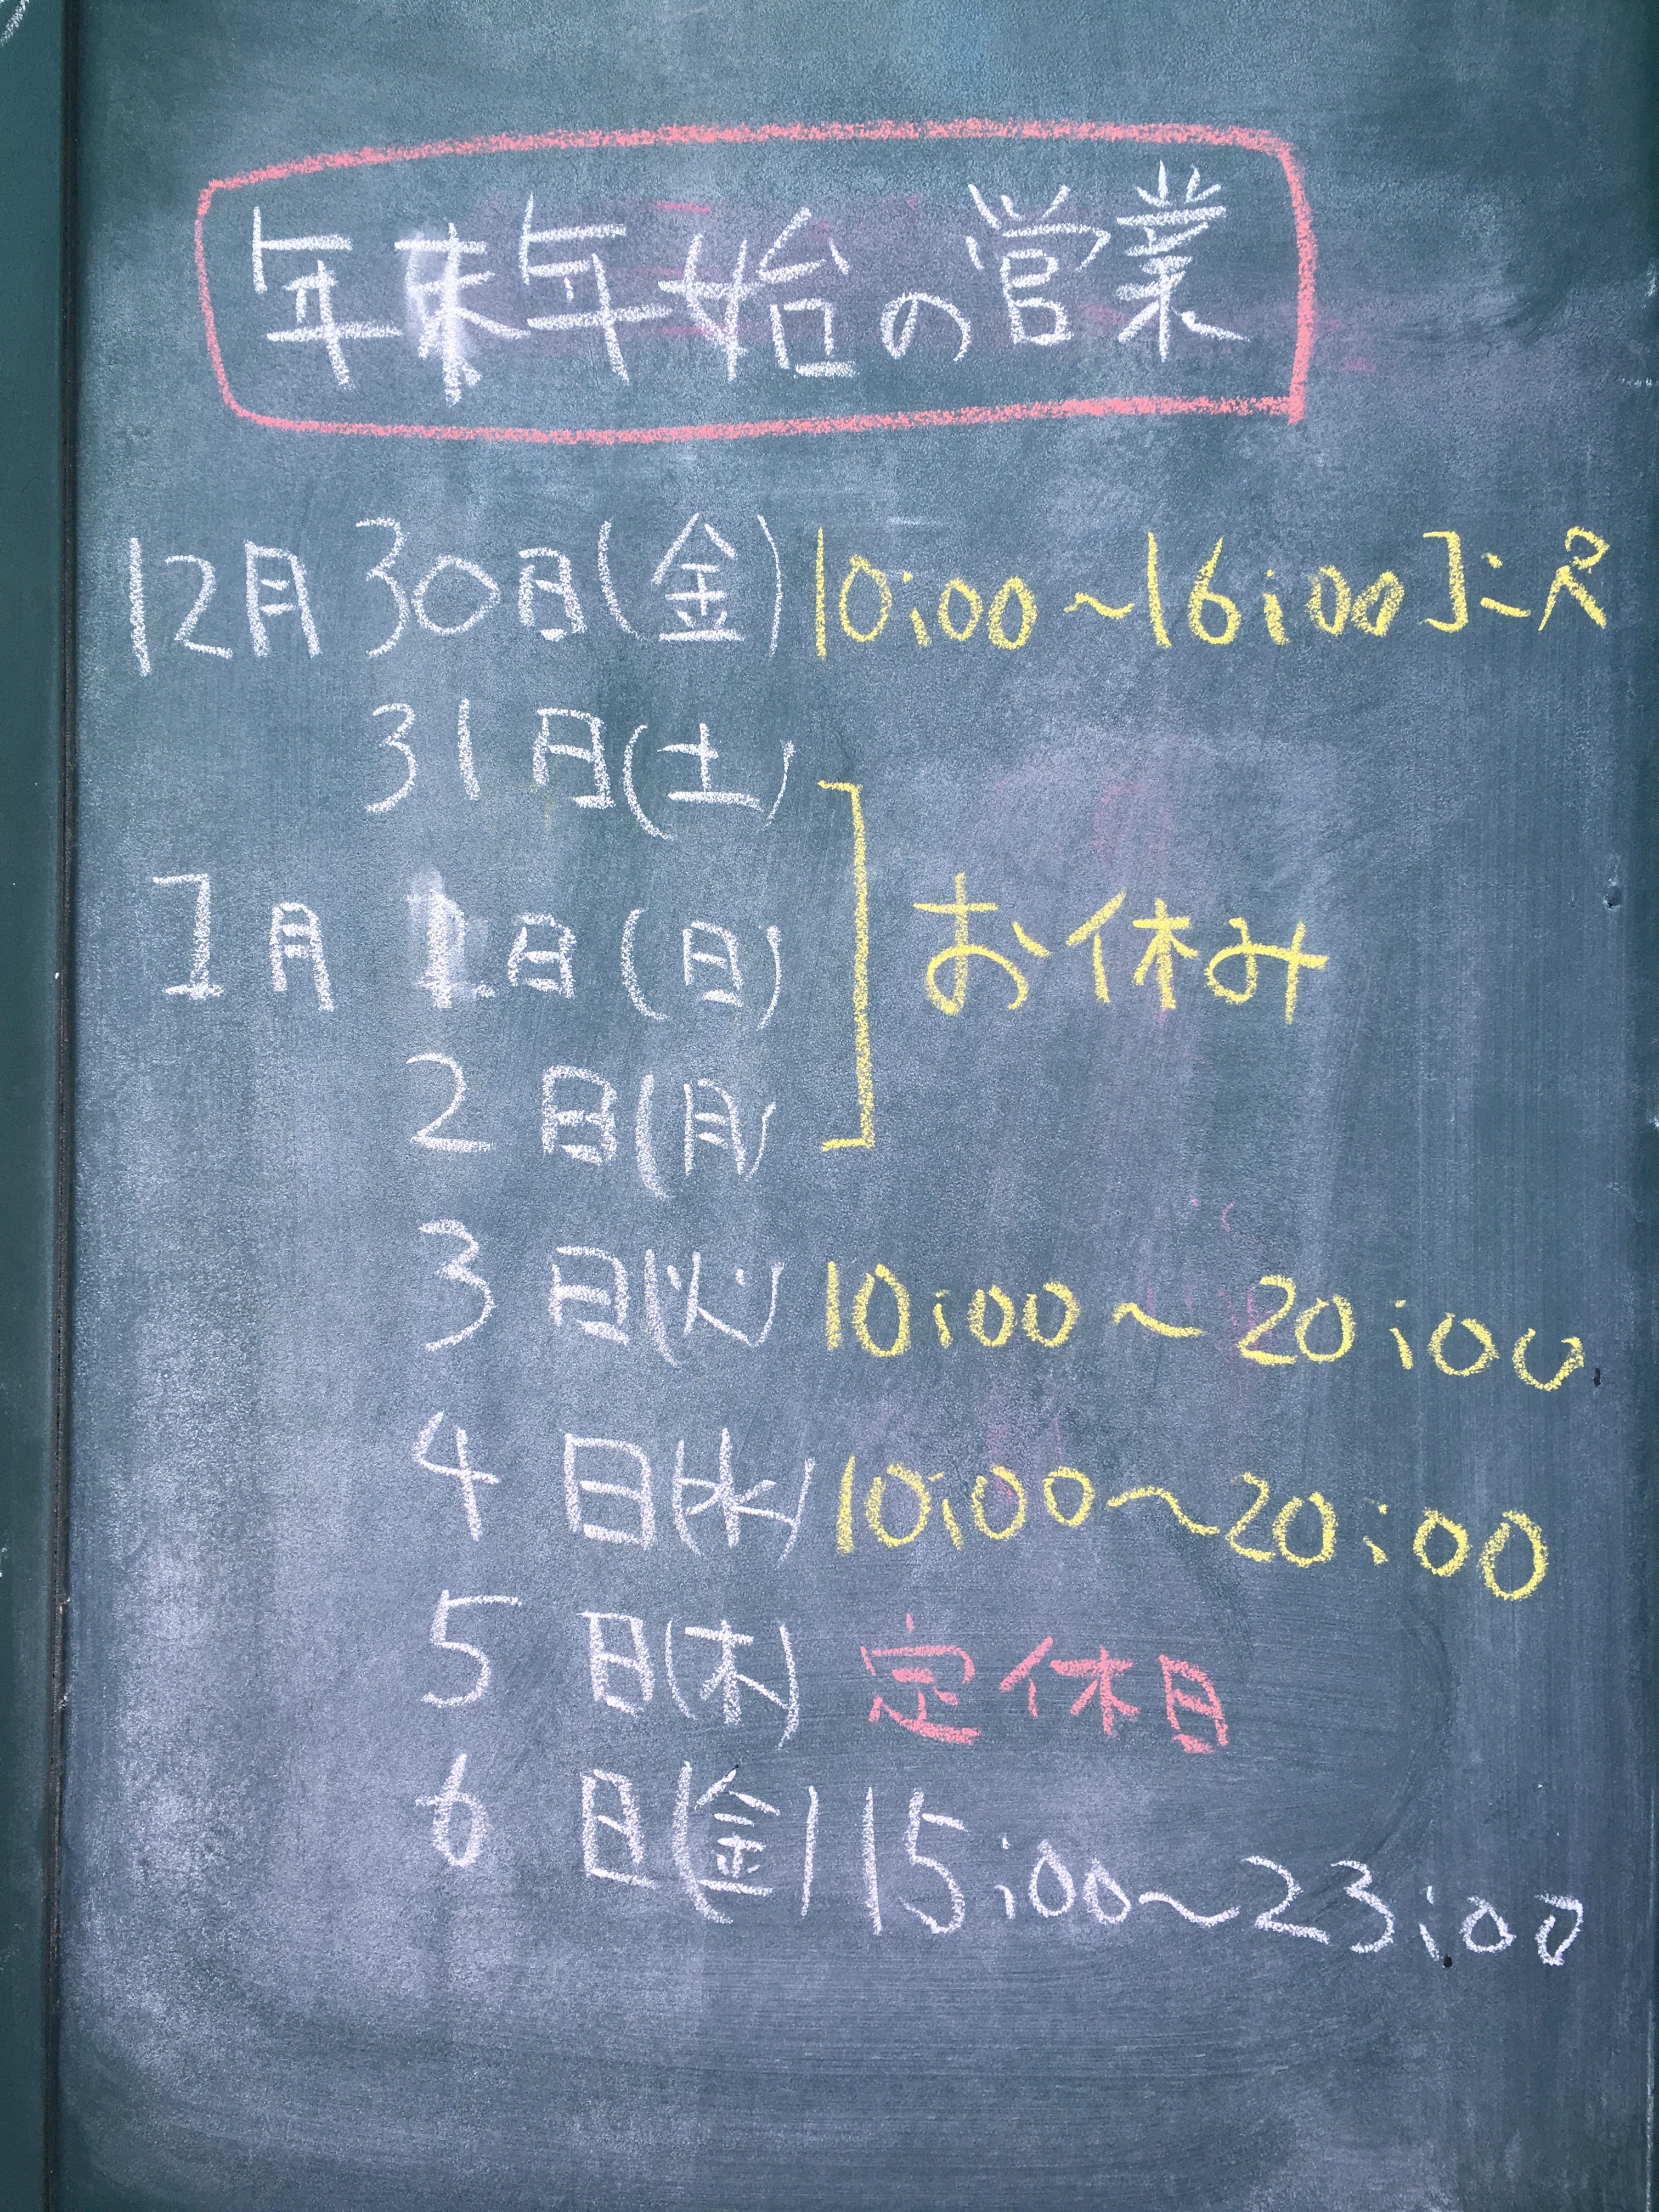 年末年始の営業
12月30日(金) 10:00~16:00
31日(土)
1月 1日(日) お休み
2日(月)
3日(火) 10:00~20:00
4日(水) 10:00~20:00
5日(木) 定休日
6日(金) 15:00~23:00